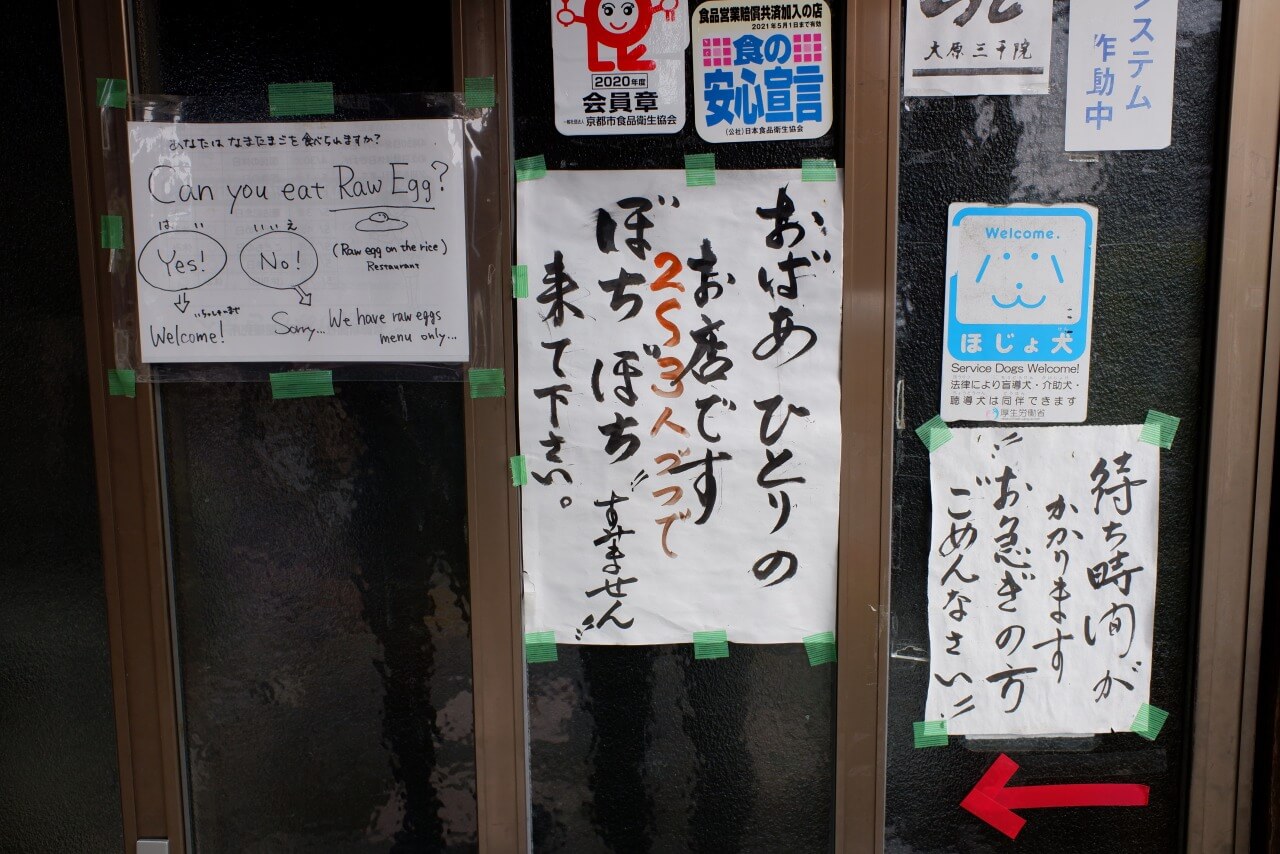 あなたはなまたまごを食べられますか?
Can you eat Raw Egg?
はい
いいえ
Yes!
No!
(Raw egg on the rice)
Restaurant
いらっしゃいませ
Welcome!
Sorry... We have raw eggs
menu only...
2020年度
会員章
一般社団法人 京都市食品衛生協会
食品営業賠償共済加入の店
2021年5月1日まで有効
食の
安心宣言
(公社)日本食品衛生協会
おばあひとりの
お店です
2〜3人づつで
ぼちぼち
来て下さい。
"すません"
大原三千院
ステム
作動中
Welcome.
ほじょ犬
Service Dogs Welcome!
法律により盲導犬・介助犬・
聴導犬は同伴できます
厚生労働省
待ち時間が
かかります
"お急ぎの方
ごめんなさい"